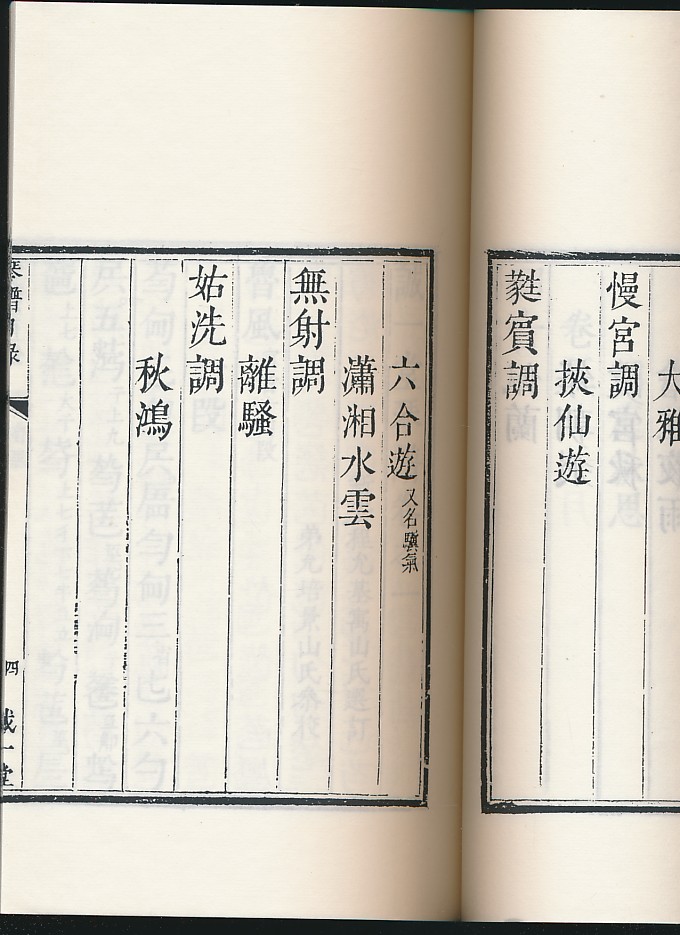 大雅
慢宮調
挾仙遊
蕤賓調
六合遊 又名騏氣
瀟湘水雲
無射調
離騷
姑洗調
秋鴻
琴譜目錄 四 誠一堂